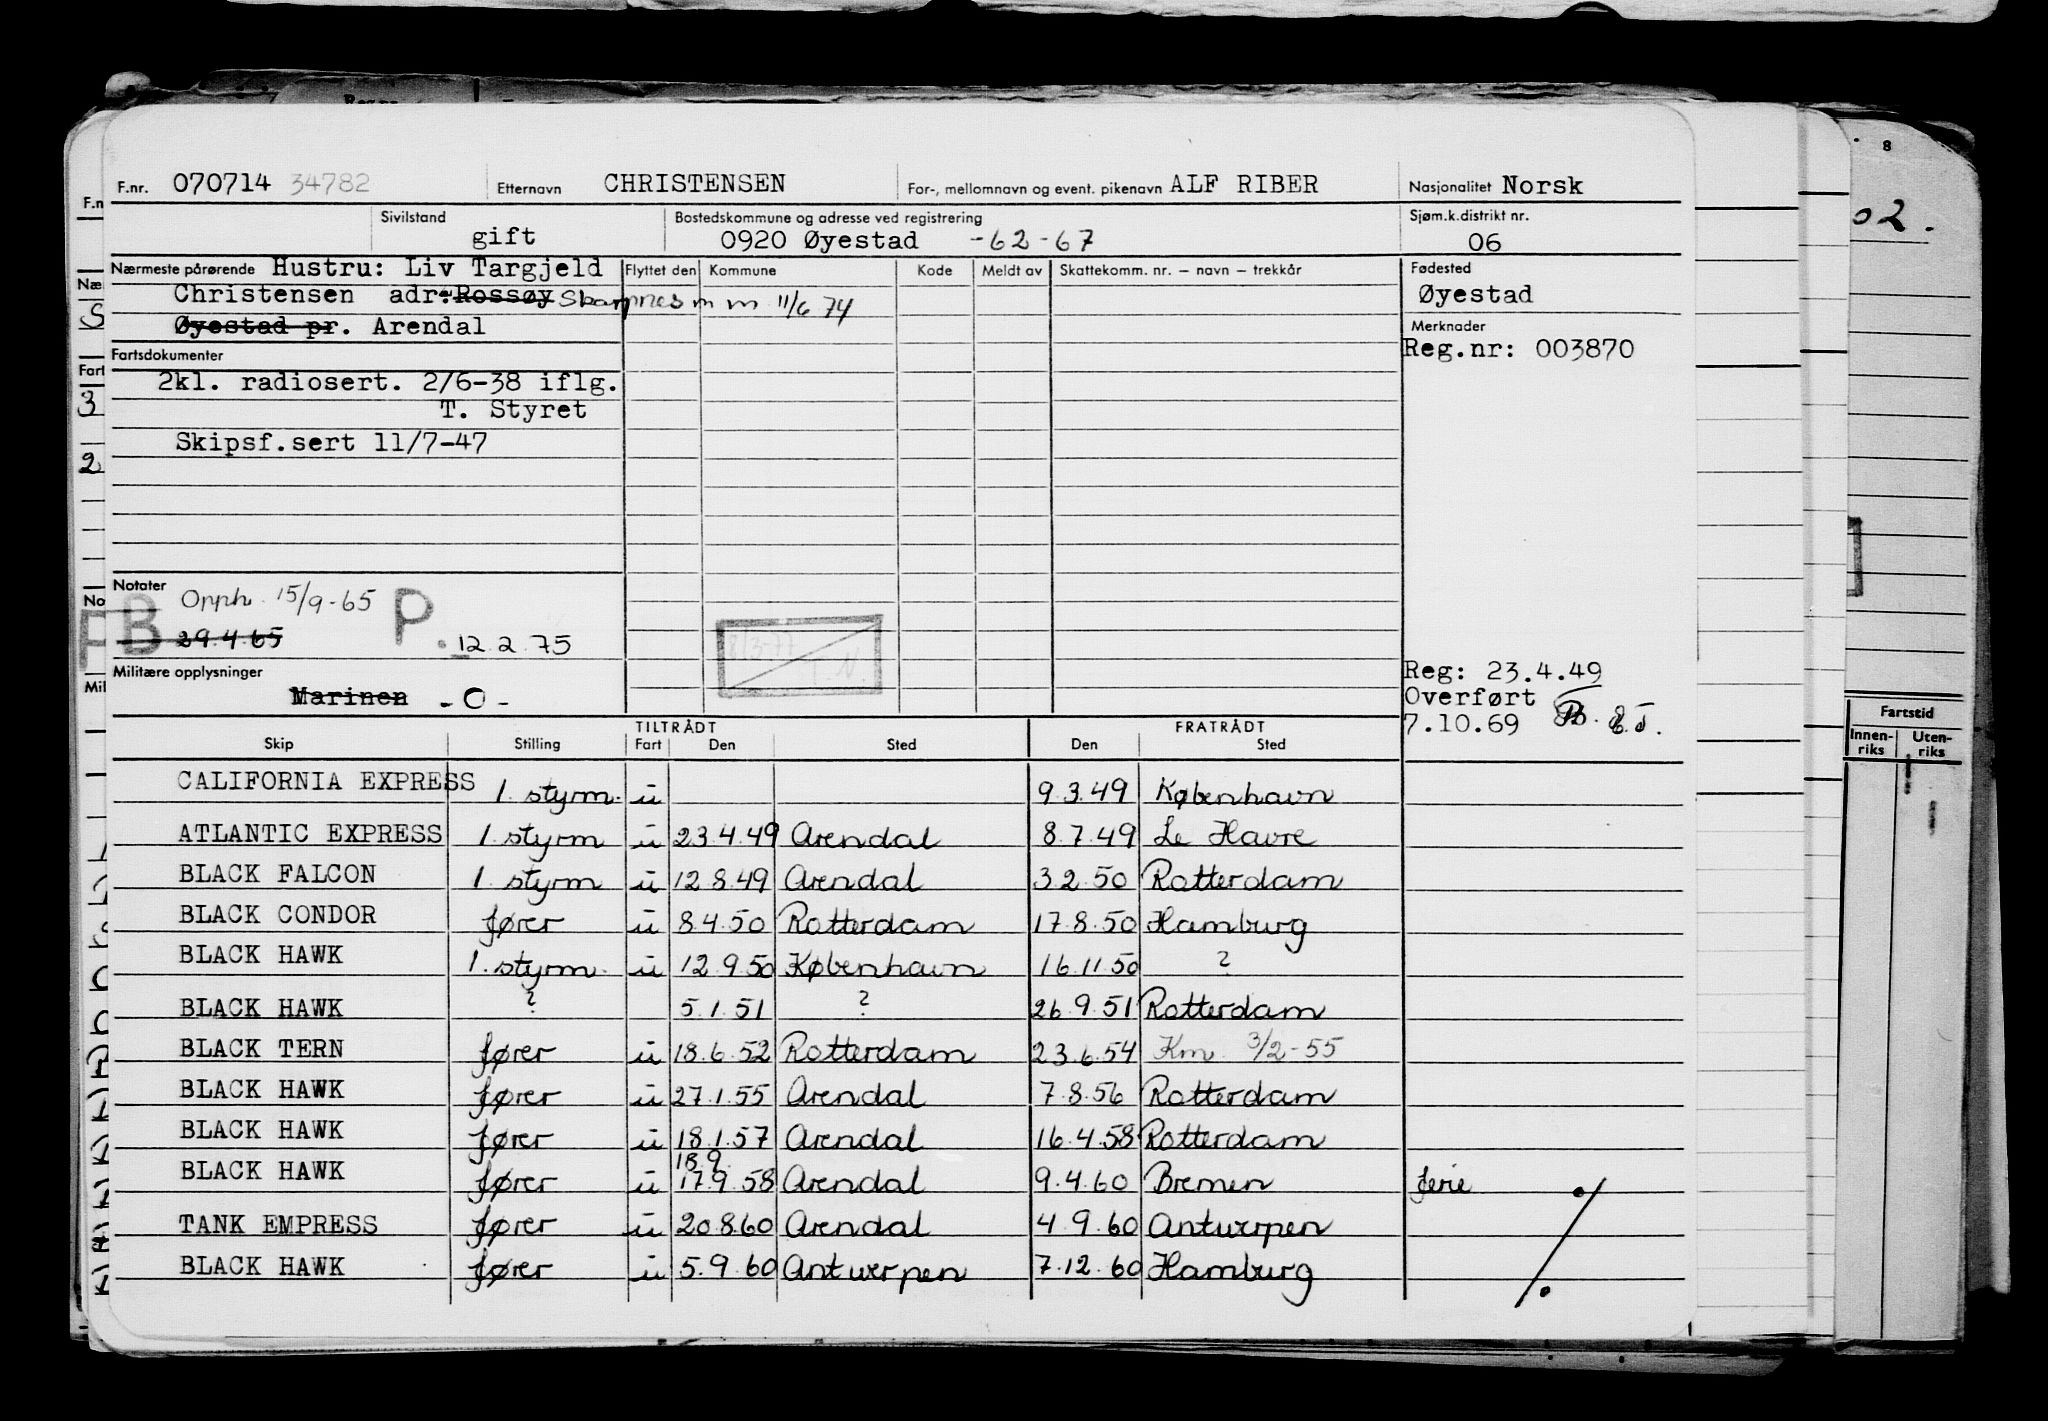 F.nr. 070714 34782 Etternavn CHRISTENSEN For-, mellomnavn og event. pikenavn ALF RIBER Nasjonalitet Norsk
Sivilstand gift Bostedskommune og adresse ved registrering 0920 Øyestad -62-67 Sjøm.k.distrikt nr. 06
Nærmeste pårørende Hustru: Liv Targjeld
Christensen adr: Rossøy Skarpnes m m 11/6 74
Øyestad pr. Arendal
Flyttet den Kommune Kode Meldt av Skattekomm. nr. – navn – trekkår
Fødested
Øyestad
Merknader
Reg.nr: 003870
Fartsdokumenter
2kl. radiosert. 2/6-38 iflg.
T. Styret
Skipsf.sert 11/7-47
Notater Opph. 15/9-65
FB 29.4.65 P. 12.2.75
8/3-77
T.N.
Militære opplysninger
Marinen -O-
Reg: 23.4.49
Overført
7.10.69
TILTRÅDT FRATRÅDT
Skip Stilling Fart Den Sted Den Sted
CALIFORNIA EXPRESS 1. styrm. u 9.3.49 København
ATLANTIC EXPRESS 1. styrm u 23.4.49 Arendal 8.7.49 Le Havre
BLACK FALCON 1. styrm u 12.8.49 Arendal 3.2.50 Rotterdam
BLACK CONDOR fører u 8.4.50 Rotterdam 17.8.50 Hamburg
BLACK HAWK 1. styrm. u 12.9.50 København 16.11.50 ?
BLACK HAWK ? 5.1.51 ? 26.9.51 Rotterdam
BLACK TERN fører u 18.6.52 Rotterdam 23.6.54 Km 3/2-55
BLACK HAWK fører u 27.1.55 Arendal 7.8.56 Rotterdam
BLACK HAWK fører u 18.1.57 Arendal 16.4.58 Rotterdam
18.9.
BLACK HAWK fører u 17.9.58 Arendal 9.4.60 Bremen ferie
TANK EMPRESS fører u 20.8.60 Arendal 4.9.60 Antwerpen
BLACK HAWK fører u 5.9.60 Antwerpen 7.12.60 Hamburg
8
02.
Fartstid
Innen-riks Uten-riks